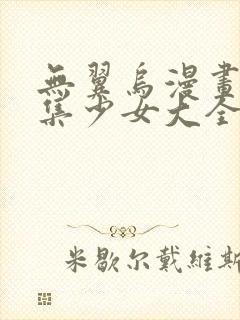 無翼烏漫畫
集少女大全
米歇尔戴維斯